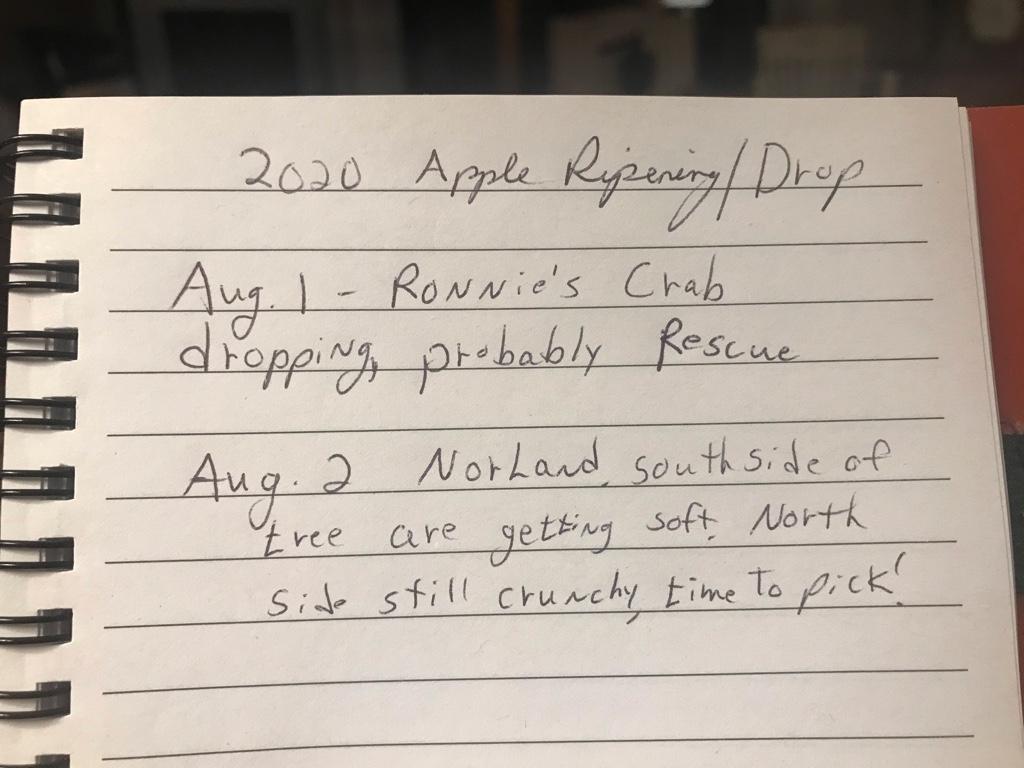 2020 Apple Ripening/Drop
Aug. 1 - Ronnie's Crab
dropping, probably Rescue
Aug. 2 Norland, south side of
tree are getting soft. North
side still crunchy, time to pick!